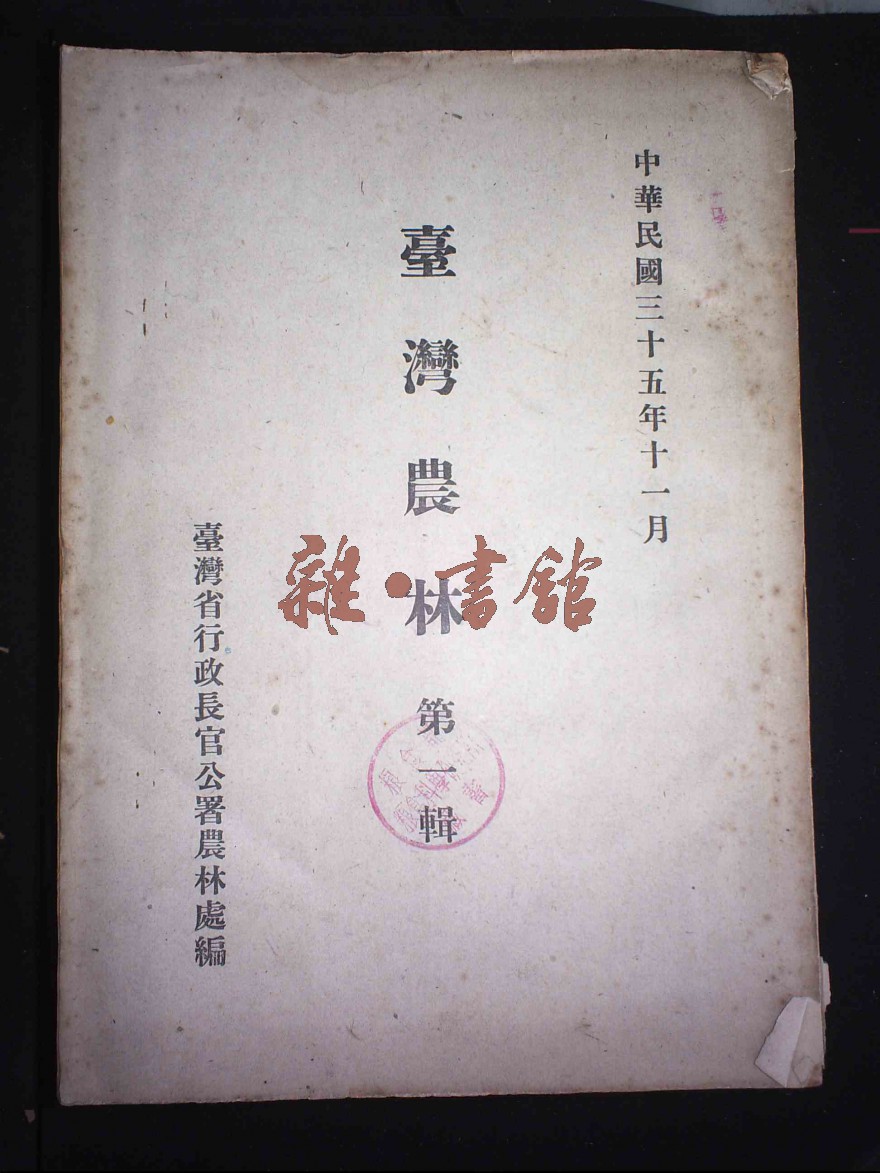 中華民國三十五年十一月
臺灣農林 第一輯
臺灣省行政長官公署農林處編
雜·書館